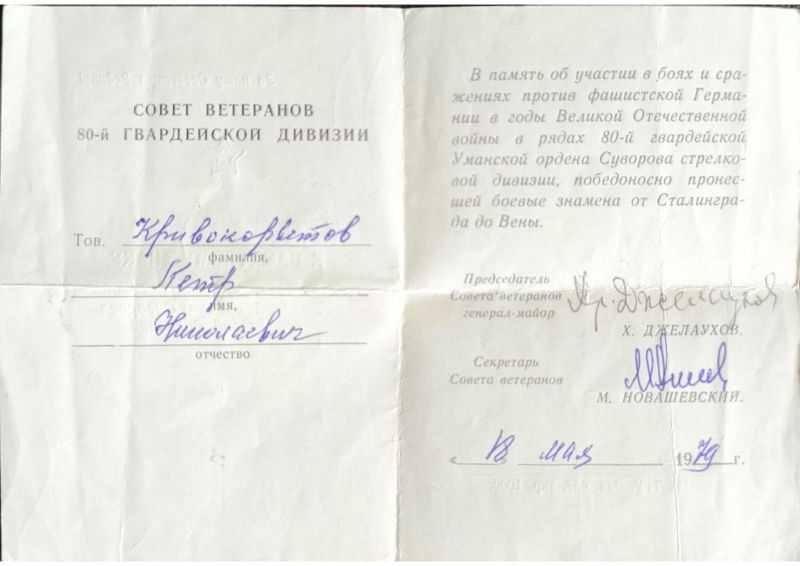 СОВЕТ ВЕТЕРАНОВ
80-й ГВАРДЕЙСКОЙ ДИВИЗИИ
Тов. Кривокорытов
фамилия,
Петр
имя,
Николаевич
отчество
В память об участии в боях и сра-
жениях против фашистской Герма-
нии в годы Великой Отечественной
войны в рядах 80-й гвардейской
Уманской ордена Суворова стрелко-
вой дивизии, победоносно пронес-
шей боевые знамена от Сталингра-
да до Вены.
Председатель
Совета ветеранов
генерал-майор
Х. ДЖЕЛАУХОВ.
Секретарь
Совета ветеранов
М. НОВАШЕВСКИЙ.
« 18 мая 1979 г.